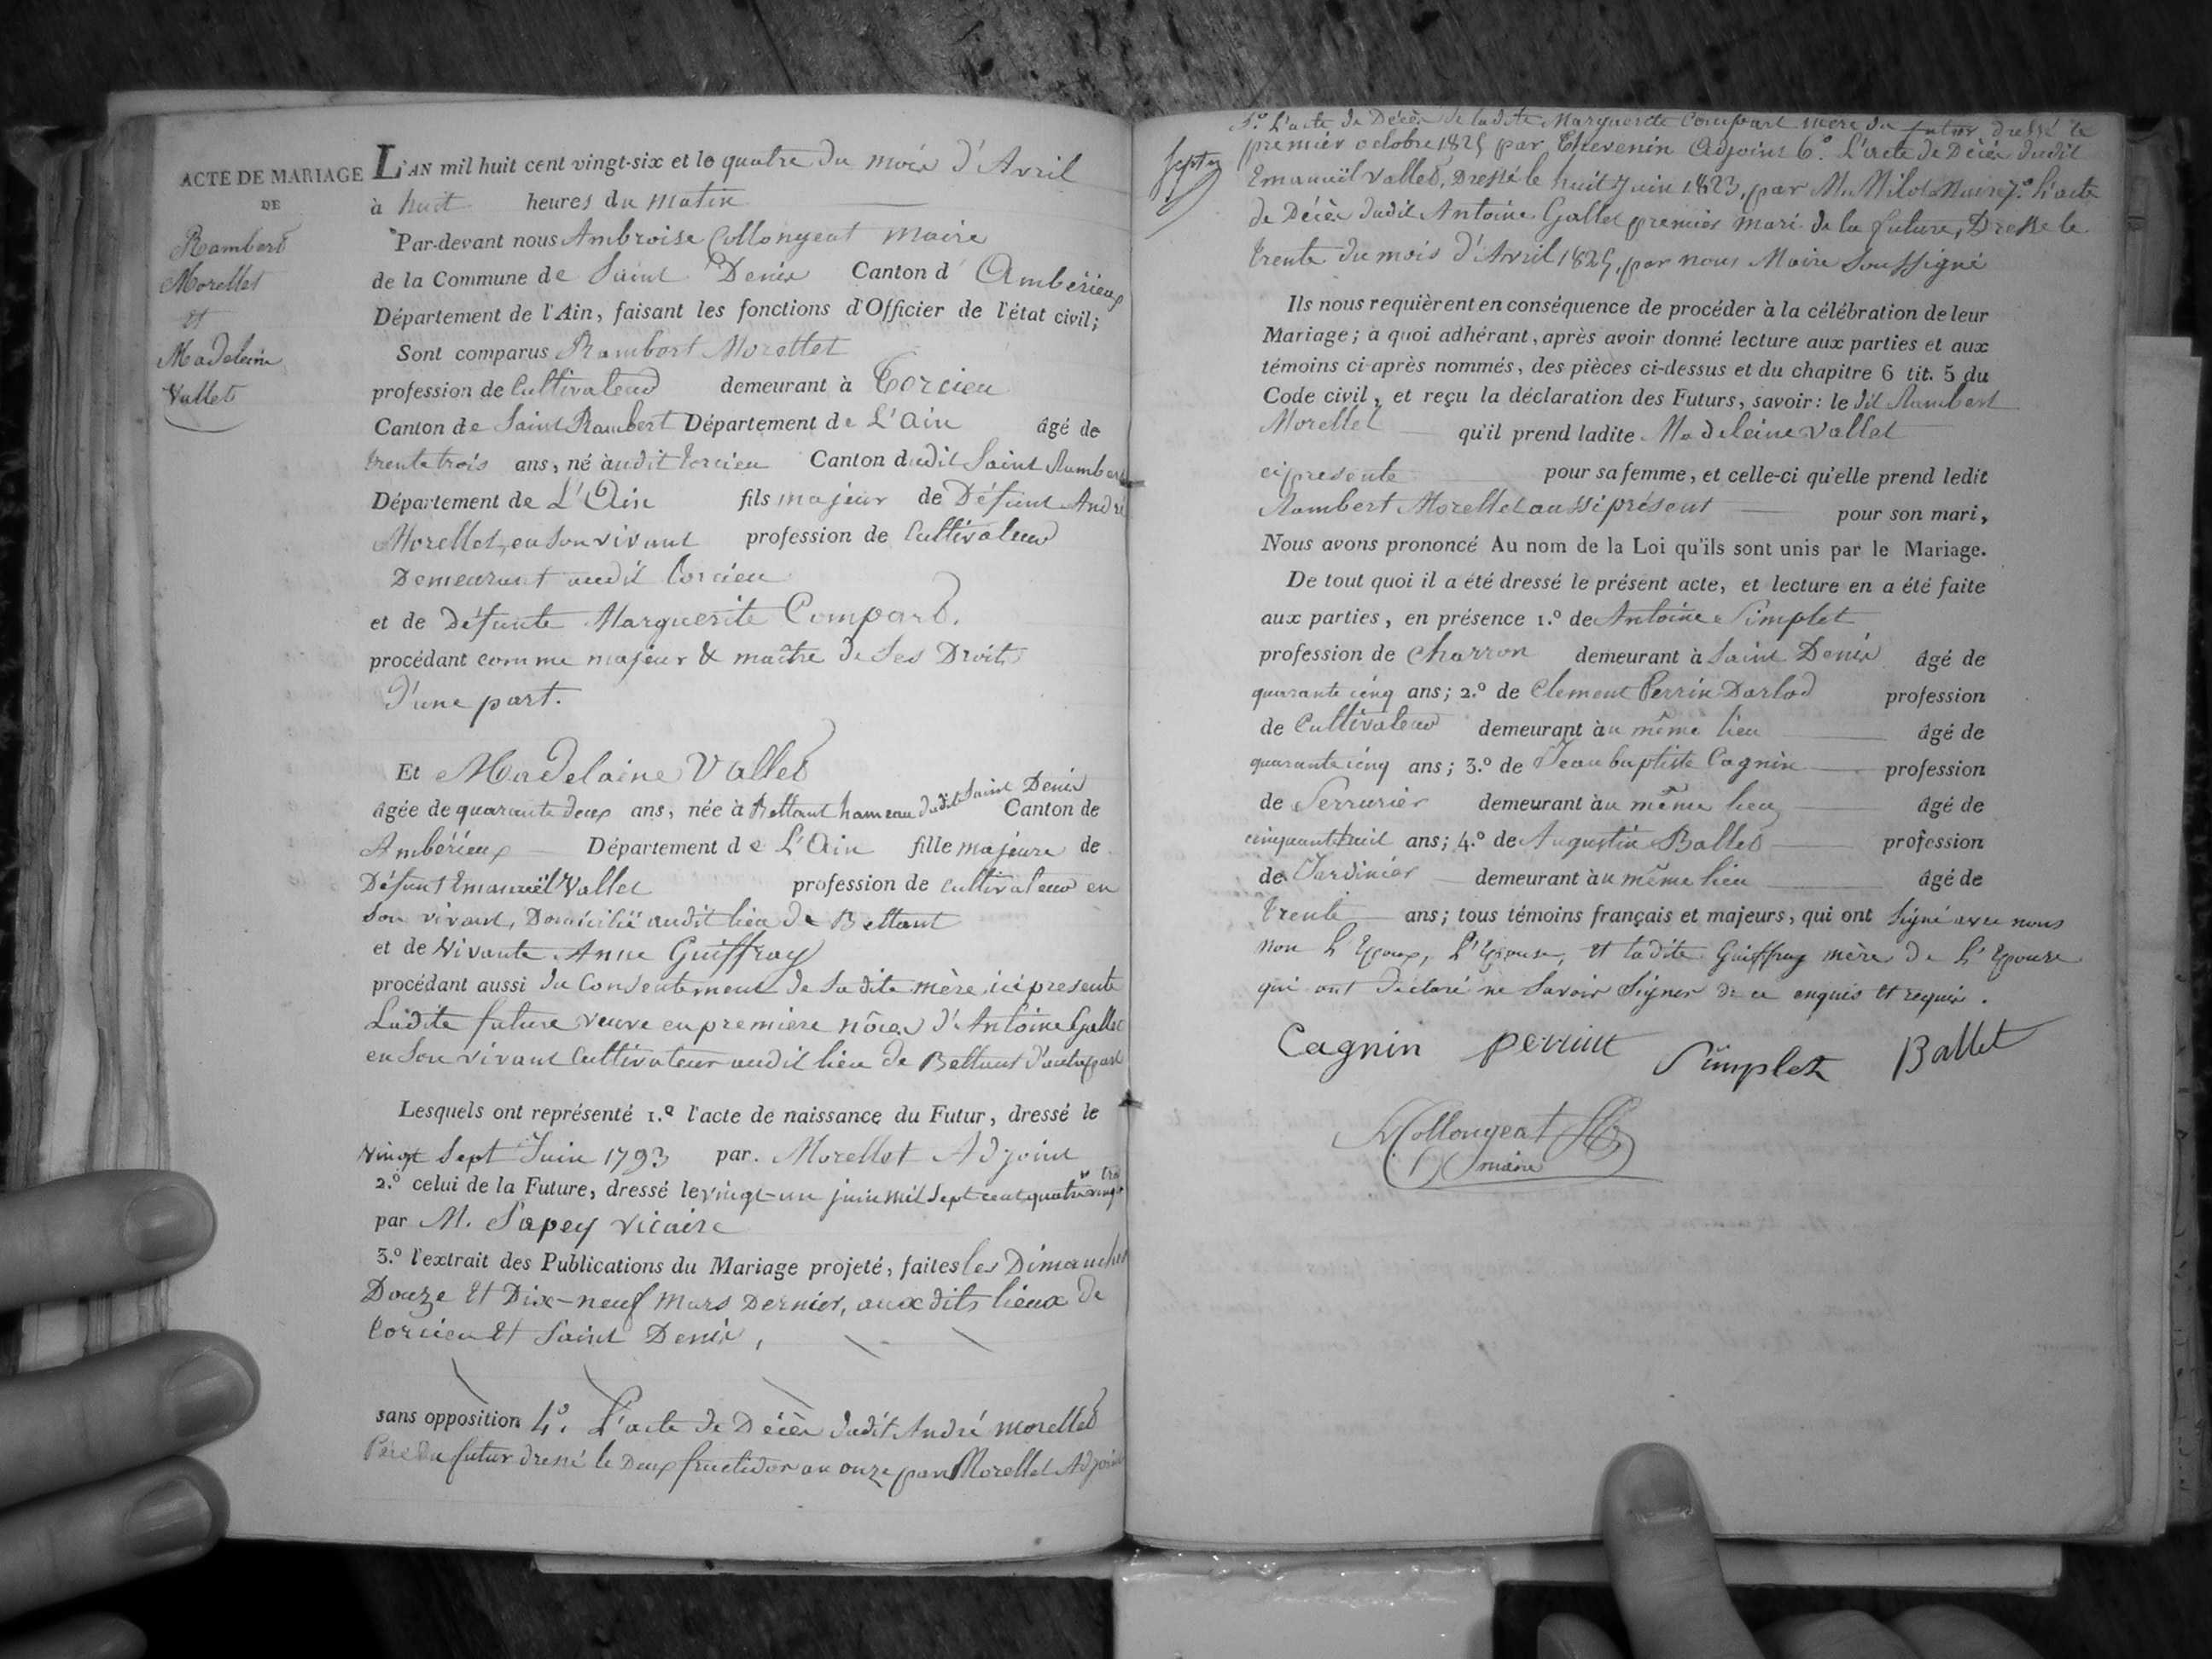 ACTE DE MARIAGE
DE
Rambert
Morellet
et
Madeleine
Vallet
L'AN mil huit cent vingt-six et le quatre du mois d'Avril
à huit heures du matin
Par-devant nous Ambroise Collongeat Maire
de la Commune de Saint Denis Canton d'Ambérieux
Département de l'Ain, faisant les fonctions d'Officier de l'état civil;
Sont comparus Rambert Morellet
profession de Cultivateur demeurant à Torcieu
Canton de Saint Rambert Département de L'Ain âgé de
trente trois ans, né audit Torcieu Canton dudit Saint Rambert
Département de L'Ain fils majeur de Défunt André
Morellet, en son vivant profession de Cultivateur
Demeurant audit Torcieu
et de Défunte Marguerite Compard.
procédant comme majeur & maître de ses Droits
D'une part.
Et Madelaine Vallet
âgée de quarante deux ans, née à Bettant hameau dudit Saint Denis Canton de
Ambérieux Département de L'Ain fille majeure de
Défunt Emanuël Vallet profession de cultivateur en
son vivant, Domicilié audit lieu de Bettant
et de Vivante Anne Guiffray
procédant aussi du Consentement de sadite mère ici presente
Ladite future veuve en premiere nôces d'Antoine Gallet
en son vivant Cultivateur audit lieu de Bettant d'autre part
Lesquels ont représenté 1.º l'acte de naissance du Futur, dressé le
vingt sept Juin 1793 par Morellet Adjoint
2.º celui de la Future, dressé le vingt-un juin mil sept cent quatre vingt trois
par M. Sapey vicaire
3.º l'extrait des Publications du Mariage projeté, faites les Dimanches
Douze et Dix-neuf Mars Dernier, aux dits lieux de
Torcieu et Saint Denis,
sans opposition 4.º L'acte de Décès dudit André Morellet
Père du futur dressé le Deux fructidor an onze par Morellet Adjoint
5.º L'acte de Décès de ladite Marguerite Compart mère du futur dressé le
premier octobre 1825 par Thevenin Adjoint 6.º L'acte de Décès dudit
Emanuël Vallet, Dressé le huit Juin 1823, par M. Milot Maire 7.º L'acte
de Décès dudit Antoine Gallet premier mari de la future, Dressé le
trente du mois d'Avril 1825, par nous Maire soussigné
Ils nous requièrent en conséquence de procéder à la célébration de leur
Mariage; à quoi adhérant, après avoir donné lecture aux parties et aux
témoins ci-après nommés, des pièces ci-dessus et du chapitre 6 tit. 5 du
Code civil, et reçu la déclaration des Futurs, savoir: le dit Rambert
Morellet qu'il prend ladite Madeleine Vallet
ci presente pour sa femme, et celle-ci qu'elle prend ledit
Rambert Morellet aussi présent pour son mari,
Nous avons prononcé Au nom de la Loi qu'ils sont unis par le Mariage.
De tout quoi il a été dressé le présent acte, et lecture en a été faite
aux parties, en présence 1.º de Antoine Simplet
profession de Charron demeurant à Saint Denis âgé de
quarante cinq ans; 2.º de Clement Perrin Darlod profession
de Cultivateur demeurant au même lieu âgé de
quarante cinq ans; 3.º de Jean baptiste Cagnin profession
de Serrurier demeurant au même lieu âgé de
cinquante huit ans; 4.º de Augustin Ballet profession
de Jardinier demeurant au même lieu âgé de
trente ans; tous témoins français et majeurs, qui ont signé avec nous
non L'Epoux, L'Epouse, et ladite Guiffray mère de L'Epouse
qui ont déclaré ne savoir signer de ce enquis et requis.
Cagnin perrin Simplet Ballet
Collongeat
maire